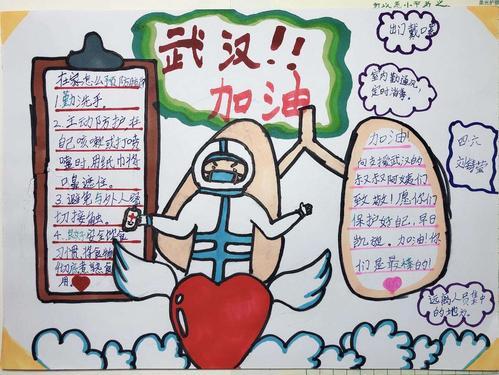 武汉!!
加油
在家怎么预防
1.勤洗手。
2.主动防护在
自己咳嗽或打喷
嚏时,用纸巾将
口鼻遮住。
3.避免与外人经
切接触。
习惯,将食物
彻底煮熟食
用。
加油
向支援武汉的
叔叔阿姨们
致敬!愿你们
保护好自己,早日
凯旋。加油!你
们是最棒的!
出门戴口罩
室内勤通风,
定时消毒。
四六
远离人员集中
的地方